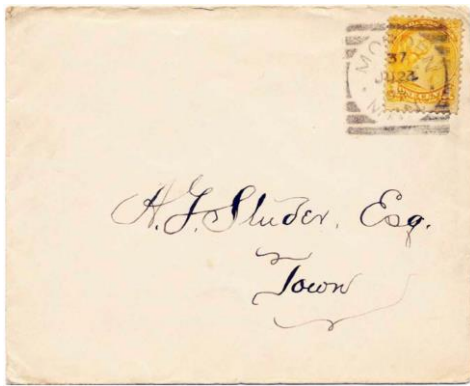 MORDEN
37
JU 23
MAN
A. J. Studer, Esq.
Town